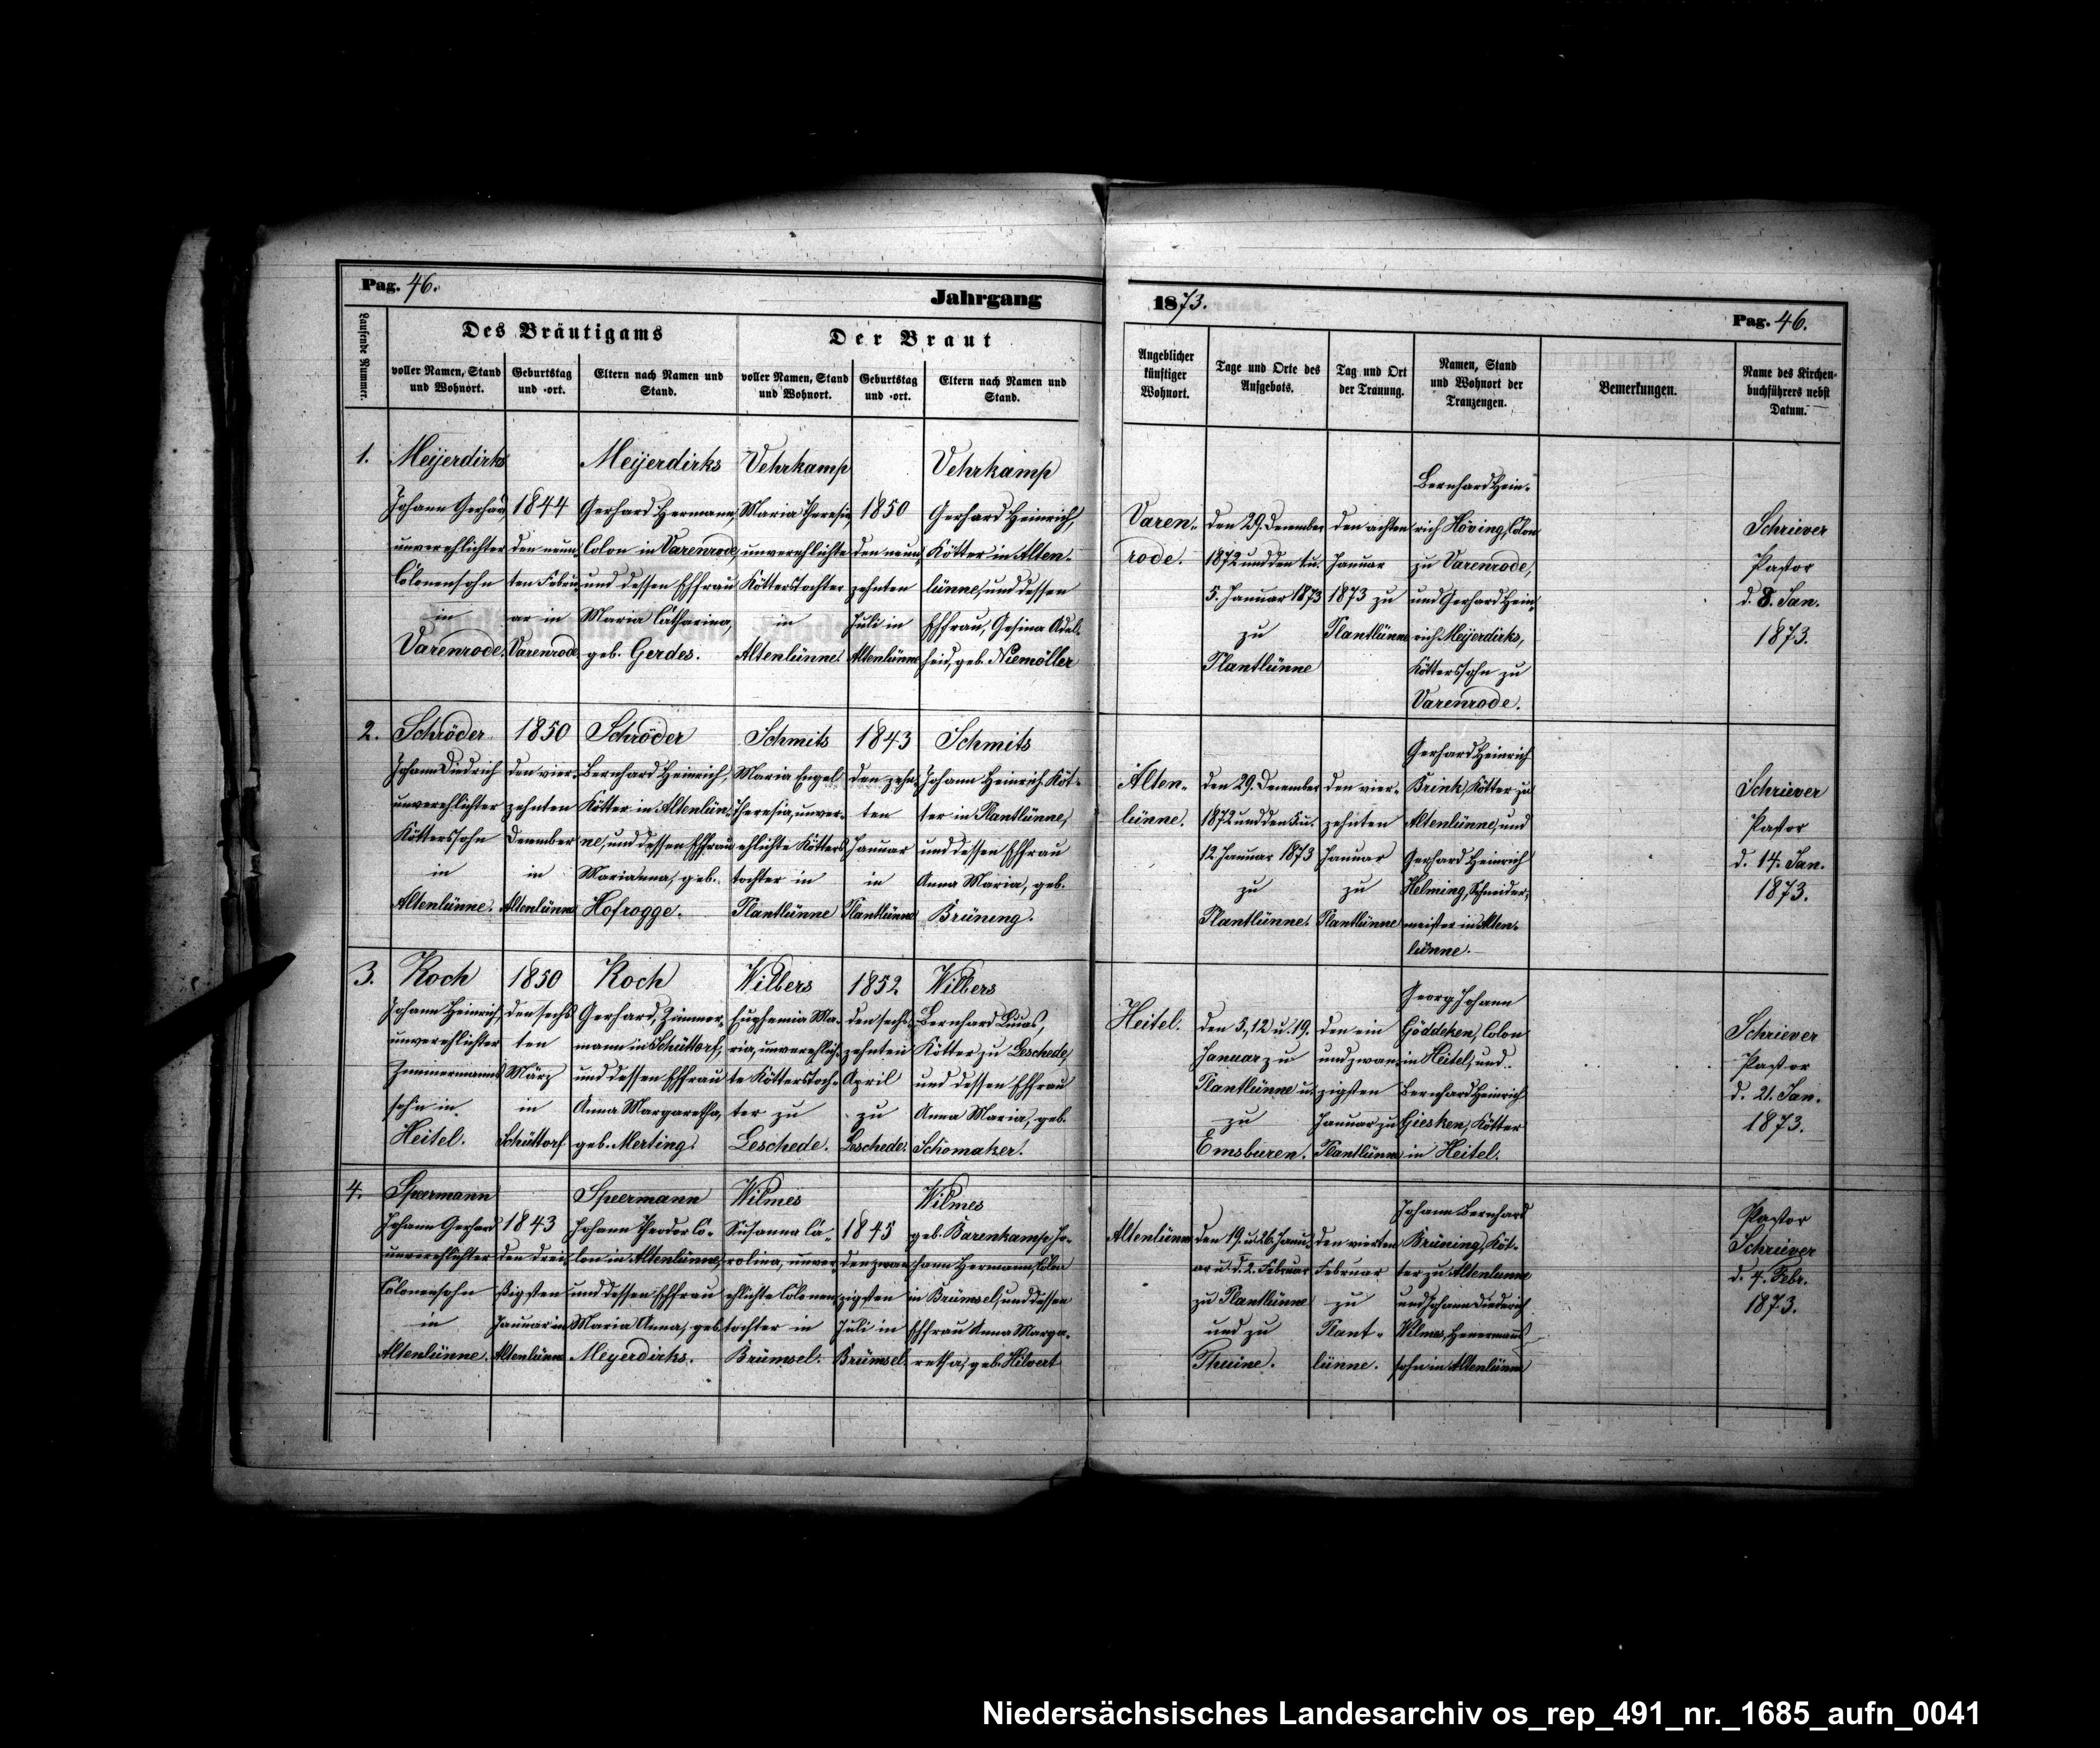 Pag. 46.
Jahrgang
1873.
Pag. 46.
Laufende Nummer.
Des Bräutigams
Der Braut
voller Namen, Stand
und Wohnort.
Geburtstag
und -ort.
Eltern nach Namen und
Stand.
voller Namen, Stand
und Wohnort.
Geburtstag
und -ort.
Eltern nach Namen und
Stand.
Angeblicher
künftiger
Wohnort.
Tage und Orte des
Aufgebots.
Tag und Ort
der Trauung.
Namen, Stand
und Wohnort der
Trauzeugen.
Bemerkungen.
Name des Kirchen-
buchführers nebst
Datum.
1.
Meijerdirks
Johann Gerhard,
unverehlichter
Colonensohn
in
Varenrode.
1844
den neun-
ten Febru-
ar in
Varenrode.
Meijerdirks
Gerhard Hermann,
Colon in Varenrode,
und dessen Ehefrau
Maria Catharina,
geb. Gerdes.
Vehrkamp
Maria Theresia,
unverehlichte
Kötterstochter
in
Altenlünne.
1850
den neun-
zehnten
Juli in
Altenlünne
Vehrkamp
Gerhard Heinrich,
Kötter in Alten-
lünne, und dessen
Ehefrau, Gesina Adel-
heid, geb. Niemöller
Varen-
rode.
den 29. December
1872 und den 1. u.
5. Januar 1873
zu
Plantlünne
den achten
Januar
1873 zu
Plantlünne
Bernhard Hein-
rich Höving, Colon
zu Varenrode,
und Gerhard Hein-
rich Meijerdirks,
Kötterssohn zu
Varenrode.
Schriever
Pastor
d. 8. Jan.
1873.
2.
Schröder
Johann Diedrich
unverehlichter
Kötterssohn
in
Altenlünne.
1850
den vier-
zehnten
December
in
Altenlünne
Schröder
Bernhard Heinrich,
Kötter in Altenlün-
ne, und dessen Ehefrau
Marianna, geb.
Hofrogge.
Schmits
Maria Engel
Theresia, unver-
ehlichte Kötters-
tochter in
Plantlünne
1843
den zehn-
ten
Januar
in
Plantlünne
Schmits
Johann Heinrich, Köt-
ter in Plantlünne,
und dessen Ehefrau
Anna Maria, geb.
Brüning.
Alten-
lünne.
den 29. December
1872 und den 5. u.
12. Januar 1873
zu
Plantlünne.
den vier-
zehnten
Januar
zu
Plantlünne
Gerhard Heinrich
Brink, Kötter zu
Altenlünne, und
Gerhard Heinrich
Helming, Schneider-
meister in Alten-
lünne.
Schriever
Pastor
d. 14. Jan.
1873.
3.
Koch
Johann Heinrich,
unverehlichter
Zimmermanns-
sohn in
Heitel.
1850
den sechs-
ten
März
in
Schüttorf.
Koch
Gerhard, Zimmer-
mann in Schüttorf,
und dessen Ehefrau
Anna Margaretha,
geb. Merting.
Wilbers
Euphemia Ma-
ria, unverehlich-
te Kötterstoch-
ter zu
Leschede.
1852
den sechs-
zehnten
April
zu
Leschede.
Wilbers
Bernhard Lucas,
Kötter zu Leschede,
und dessen Ehefrau
Anna Maria, geb.
Schomaker.
Heitel.
den 5., 12. u. 19.
Januar zu
Plantlünne u.
zu
Emsbüren.
den ein
und zwan-
zigsten
Januar zu
Plantlünne
Georg Johann
Göddeken, Colon
in Heitel, und
Bernhard Heinrich
Giesken, Kötter
in Heitel.
Schriever
Pastor
d. 21. Jan.
1873.
4.
Speermann
Johann Gerhard
unverehlichter
Colonensohn
in
Altenlünne.
1843
den drei-
ßigsten
Januar in
Altenlünne
Speermann
Johann Theodor Co-
lon in Altenlünne,
und dessen Ehefrau
Maria Anna, geb.
Meyerdirks.
Wilmes
Susanna Ca-
rolina, unver-
ehlichte Colonen-
tochter in
Brümsel.
1845
den zwan-
zigsten
Juli in
Brümsel
Wilmes
geb. Barenkamp Jo-
hann Hermann, Colon
in Brümsel, und dessen
Ehefrau Anna Marga-
retha, geb. Hilvert
Altenlünne
den 19. u. 26. Janu-
ar u. d. 2. Februar
zu Plantlünne
und zu
Thuine.
den vierten
Februar
zu
Plant-
lünne.
Johann Bernhard
Brüning, Köt-
ter zu Altenlünne
und Johann Diederich
Wilmes, Heuermanns-
sohn in Altenlünne
Pastor
Schriever
d. 4. Febr.
1873.
Niedersächsisches Landesarchiv os_rep_491_nr._1685_aufn_0041